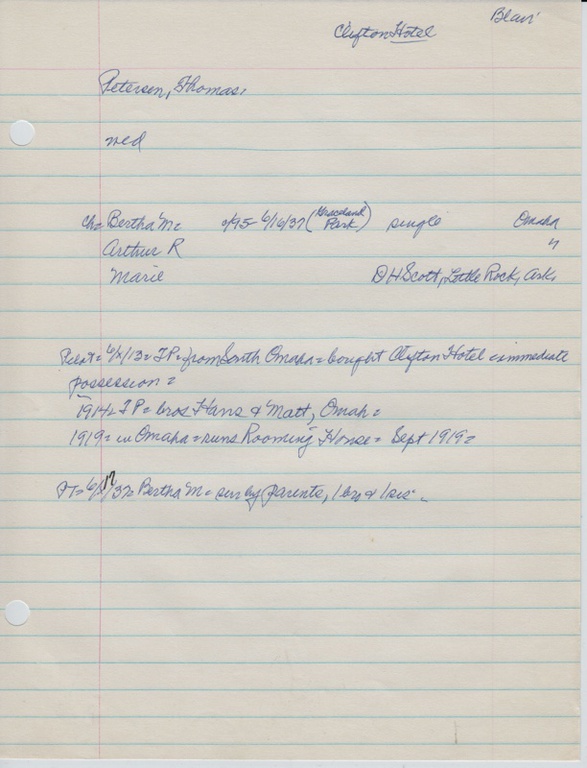 Blair
Clifton Hotel
Petersen, Thomas,
wed
ch= Bertha M= 2/95- 6/16/37 (Graceland Park) single Omaha
Arthur R "
Marie D H Scott, Little Rock, Ark,
Pilot= 6/ /13= TP= from South Omaha= bought Clifton Hotel = immediate
possession=
1914= TP= bros Hans & Matt, Omah=
1919= in Omaha= runs Rooming House= Sept 1919=
6/17/37= Bertha M= sur by parents, 1 bro & 1 sis=